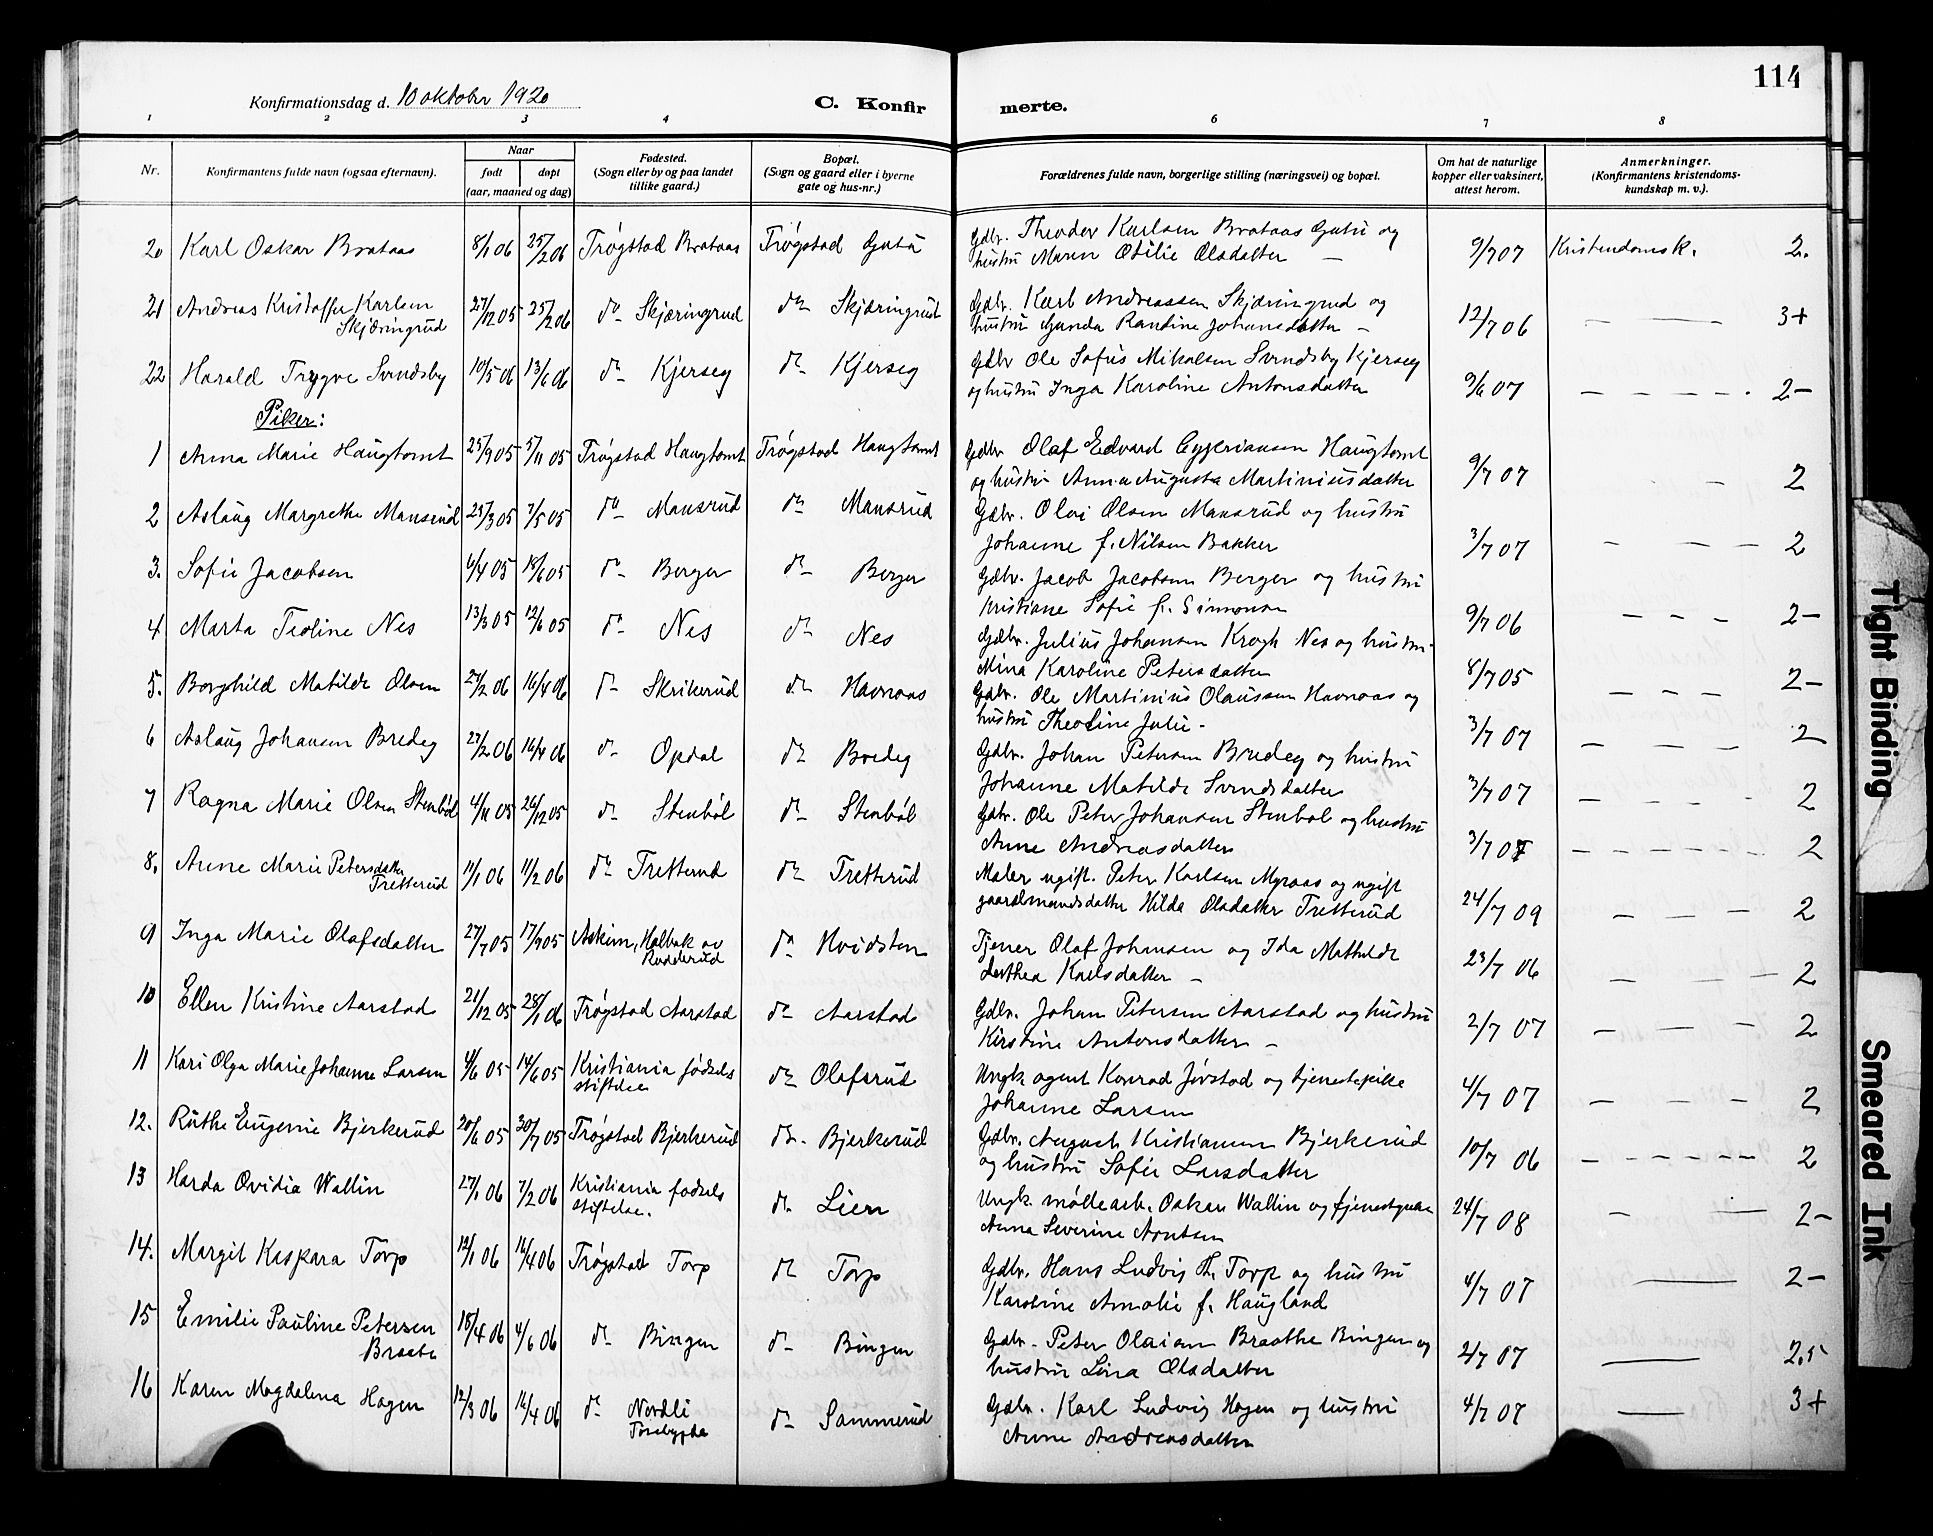 114
Konfirmationsdag d. 10 oktober 1920
C. Konfir merte.
1 2 3 4 6 7 8
Nr. Konfirmantens fulde navn (ogsaa efternavn). Naar født døpt (aar, maaned og dag) Fødested. (Sogn eller by og paa landet tillike gaard.) Bopæl. (Sogn og gaard eller i byerne gate og hus-nr.) Forældrenes fulde navn, borgerlige stilling (næringsvei) og bopæl. Om hat de naturlige kopper eller vaksinert, attest herom. Anmerkninger. (Konfirmantens kristendoms-kundskap m. v.).
20 Karl Oskar Brataas 8/1 06 25/2 06 Trøgstad Brataas Trøgstad Gutu Gdbr. Theodor Karlsen Brataas Gutu og hustru Maren Otilie Olsdatter — 9/7 07 Kristendomsk. 2.
21 Andreas Kristoffer Karlsen Skjæringrud 27/12 05 25/2 06 do Skjæringrud do Skjæringrud Gdbr. Karl Andreassen Skjæringrud og hustru Gunda Randine Johansdatter — 12/7 06 — — 3+
22 Harald Trygve Svendsby 10/5 06 13/6 06 do Kjerseg do Kjerseg Gdbr Ole Sofus Mikalsen Svendsby Kjerseg og hustru Inga Karoline Antonsdatter 9/6 07 — — — 2-
Piker:
1 Anna Marie Haugtomt 25/9 05 5/11 05 Trøgstad Haugtomt Trøgstad Haugtomt Gdbr Olaf Edvard Cypriansen Haugtomt og hustru Anna Augusta Martiniusdatter 9/7 07 - - 2
2 Aslaug Margrethe Mansrud 25/3 05 7/5 05 do Mansrud do Mansrud Gdbr. Olai Olsen Mansrud og hustru Johanne f. Nilsen Bakker 3/7 07 — — — 2
3. Sofie Jacobsen 4/4 05 18/6 05 do Berger do Berger Gdbr. Jacob Jacobsen Berger og hustru Kristiane Sofie f. Simonsen 9/7 06 — — — 2-
4 Marta Teoline Nes 13/3 05 12/6 05 do Nes do Nes Gdbr. Julius Johansen Krogh Nes og hustru Mina Karoline Petersdatter 8/7 05 — — — 2-
5. Borghild Matilde Olsen 27/2 06 16/4 06 do Skrikerud do Havnaas Gdbr. Ole Martinius Olaussen Havnaas og hustru Theoline Julie - 3/7 07 — — — 2
6 Aslaug Johansen Bredeg 27/2 06 16/4 06 do Opdal do Bredeg Gdbr. Johan Petersen Bredeg og hustru Johanne Matilde Svendsdatter 3/7 07 — — — 2
7 Ragna Marie Olsen Stenbøl 4/11 05 26/12 05 do Stenbøl do Stenbøl Gdbr. Ole Peter Johansen Stenbøl og hustru Anne Andreasdatter 3/7 07 — — — 2
8. Anne Marie Petersdatter Tretterud 11/1 06 11/2 06 do Tretterud do Tretterud Maler ugift. Peter Karlsen Myraas og ugift gaardmandsdatter Hilda Olsdatter Tretterud 24/7 09 — — — 2
9 Inga Marie Olafsdatter 27/7 05 17/9 05 Askim, Holbæk av Rudderud do Hvidsten Tjener Olaf Johansen og Ida Mathilde Karlsdatter — 23/7 06 — — — 2
10 Ellen Kristine Aarstad 21/12 05 28/1 06 Trøgstad Aarstad do Aarstad Gdbr. Johan Petersen Aarstad og hustru Kirstine Antonsdatter — 2/7 07 — — — 2
11 Kari Olga Marie Johanne Larsen 4/6 05 14/6 05 Kristiania fødsels stiftelse do Olafsrud Ungk. agent Konrad Jørstad og tjenestepike Johanne Larsen 4/7 07 — — — 2
12. Ruthe Eugenie Bjerkerud 20/6 05 30/7 05 Trøgstad Bjerkerud do. Bjerkerud Gdbr. August Kristiansen Bjerkerud og hustru Sofie Larsdatter 10/7 06 — — — 2
13 Harda Ovidia Wallin 27/1 06 7/2 06 Kristiania fødsels stiftelse. do Lien Ungk. møllearb. Oskar Wallin og tjenestpike Anna Severine Arntsen 24/7 08 — — 2-
14. Margit Kaspara Torp 12/1 06 16/4 06 Trøgstad Torp do Torp Gdbr. Hans Ludvig Th. Torp og hustru Karoline Amalie f. Haugland 4/7 07 — 2-
15 Emilie Pauline Petersen Braate 18/4 06 4/6 06 do Bingen do Bingen Gdbr. Peter Olaisen Braathe Bingen og hustru Lina Olsdatter 2/7 07 — 2,5
16 Karen Magdalena Hagen 12/3 06 16/4 06 do Nordli do Sammerud Gdbr. Karl Ludvig Hagen og hustru Anne Andreasdatter 4/7 07 — 3+
Tight Binding
Smeared Ink